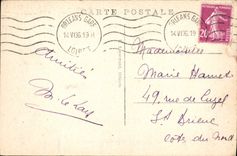 CARTE POSTALE
ORLEANS GARE
14 VI 36 19 H
LOIRET
ORLEANS GARE
14 VI 36 19 H
20
Amitiés
Mademoiselle
Marie Hamet
49, rue de
St Brieuc
Côte du Nord